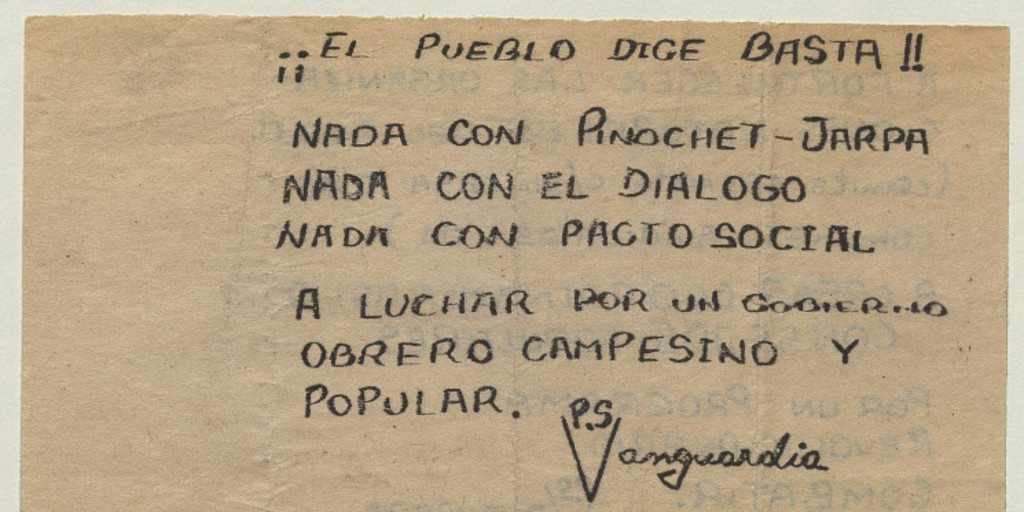 ¡¡EL PUEBLO DICE BASTA!!
NADA CON PINOCHET-JARPA
NADA CON EL DIALOGO
NADA CON PACTO SOCIAL
A LUCHAR POR UN GOBIERNO
OBRERO CAMPESINO Y
POPULAR.
P.S
Vanguardia